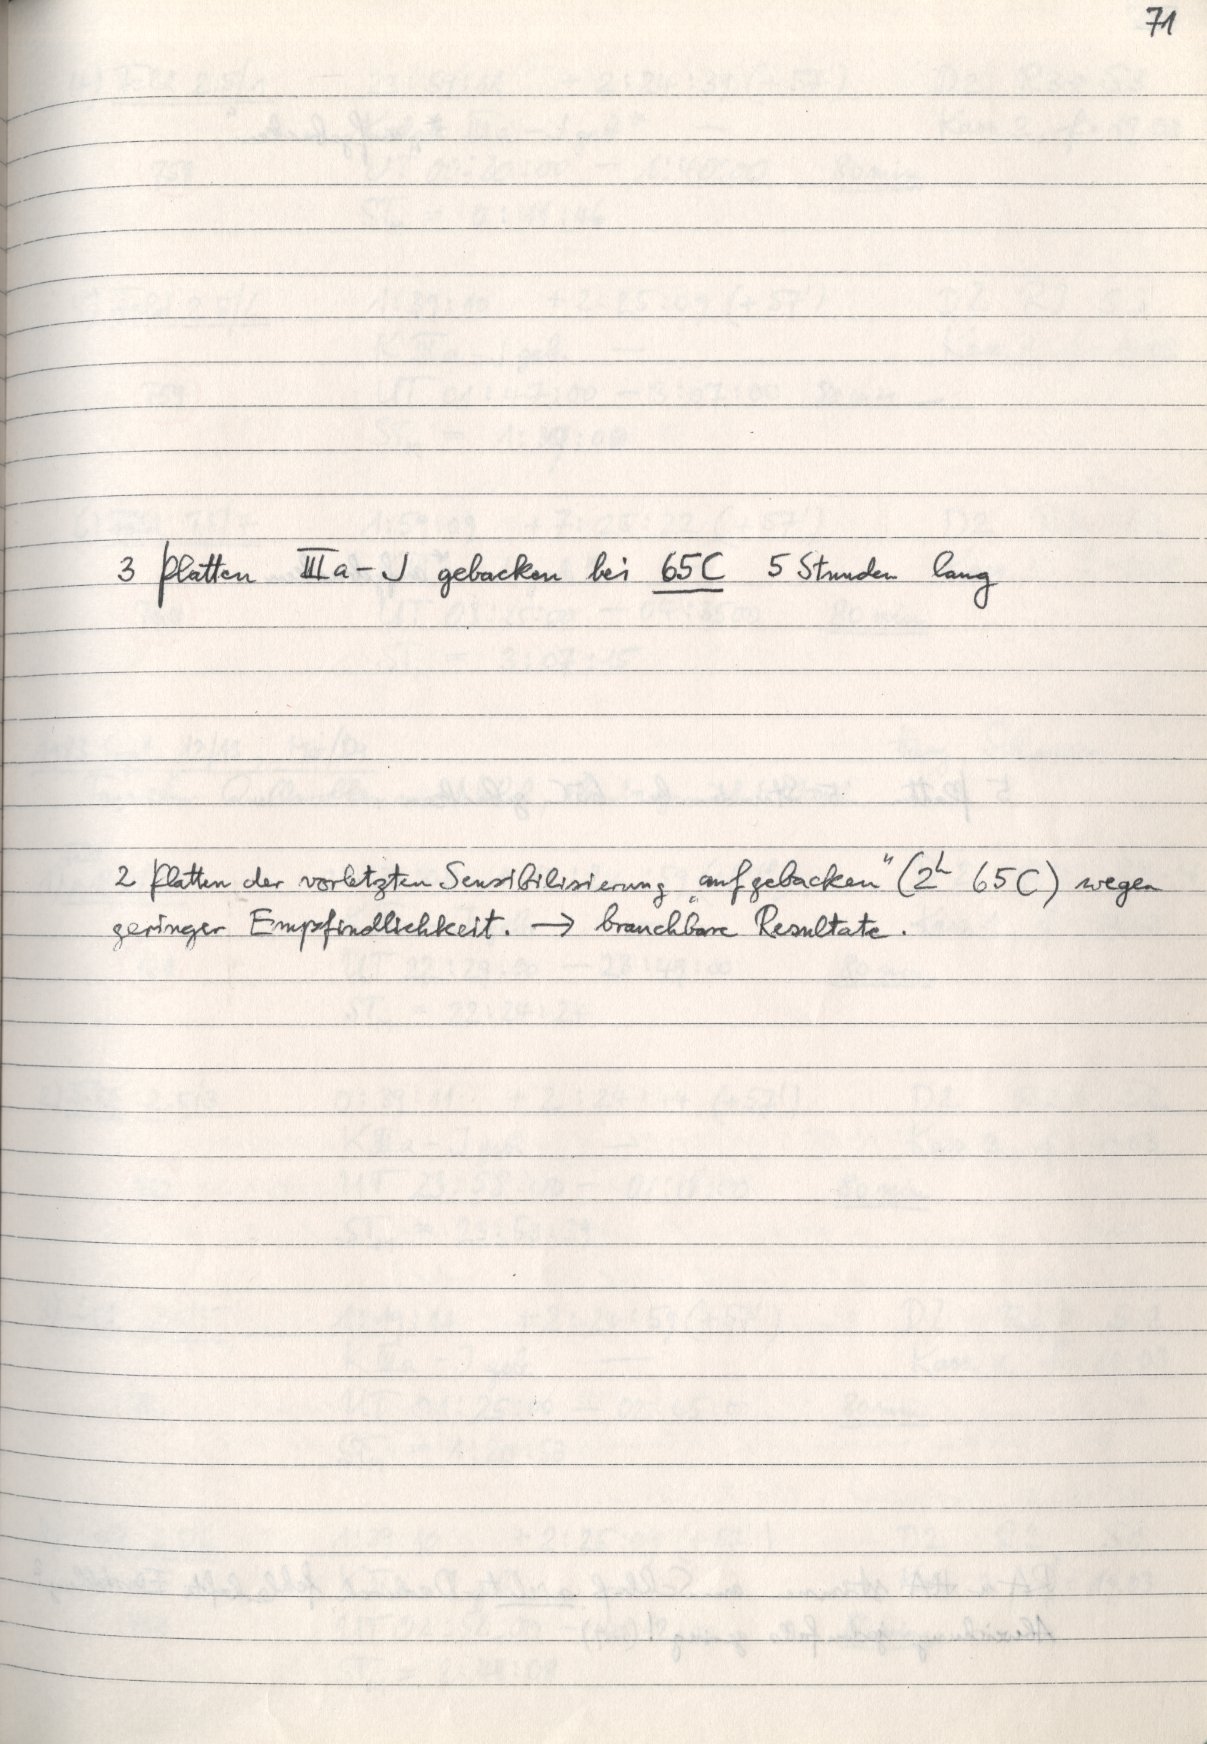 71
3 Platten IIIa-J gebacken bei 65C 5 Stunden lang
2 Platten der vorletzten Sensibilisierung „aufgebacken" (2h 65C) wegen
geringer Empfindlichkeit. → brauchbare Resultate.